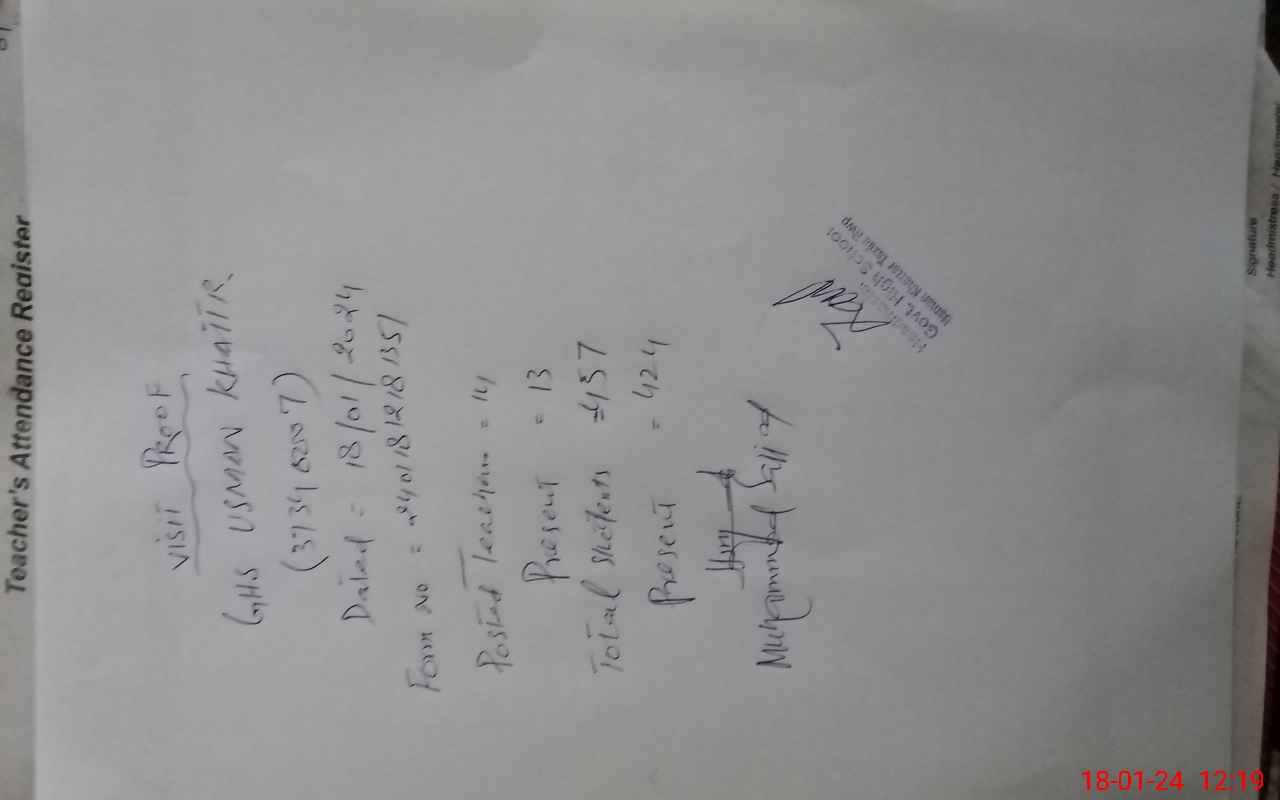 Teacher's Attendance Register
VISIT PROOF
GHS USMAN KHATTR
Dated = 18/01/2024
Form No = 24011812181351
Posted Teachers = 14
Present = 13
Total Students = 457
Present = 424
Muhammad Sajjad
Govt. High School
Usman Khattar Taxila Rwp
Signature
Headmistress /
18-01-24 12:19